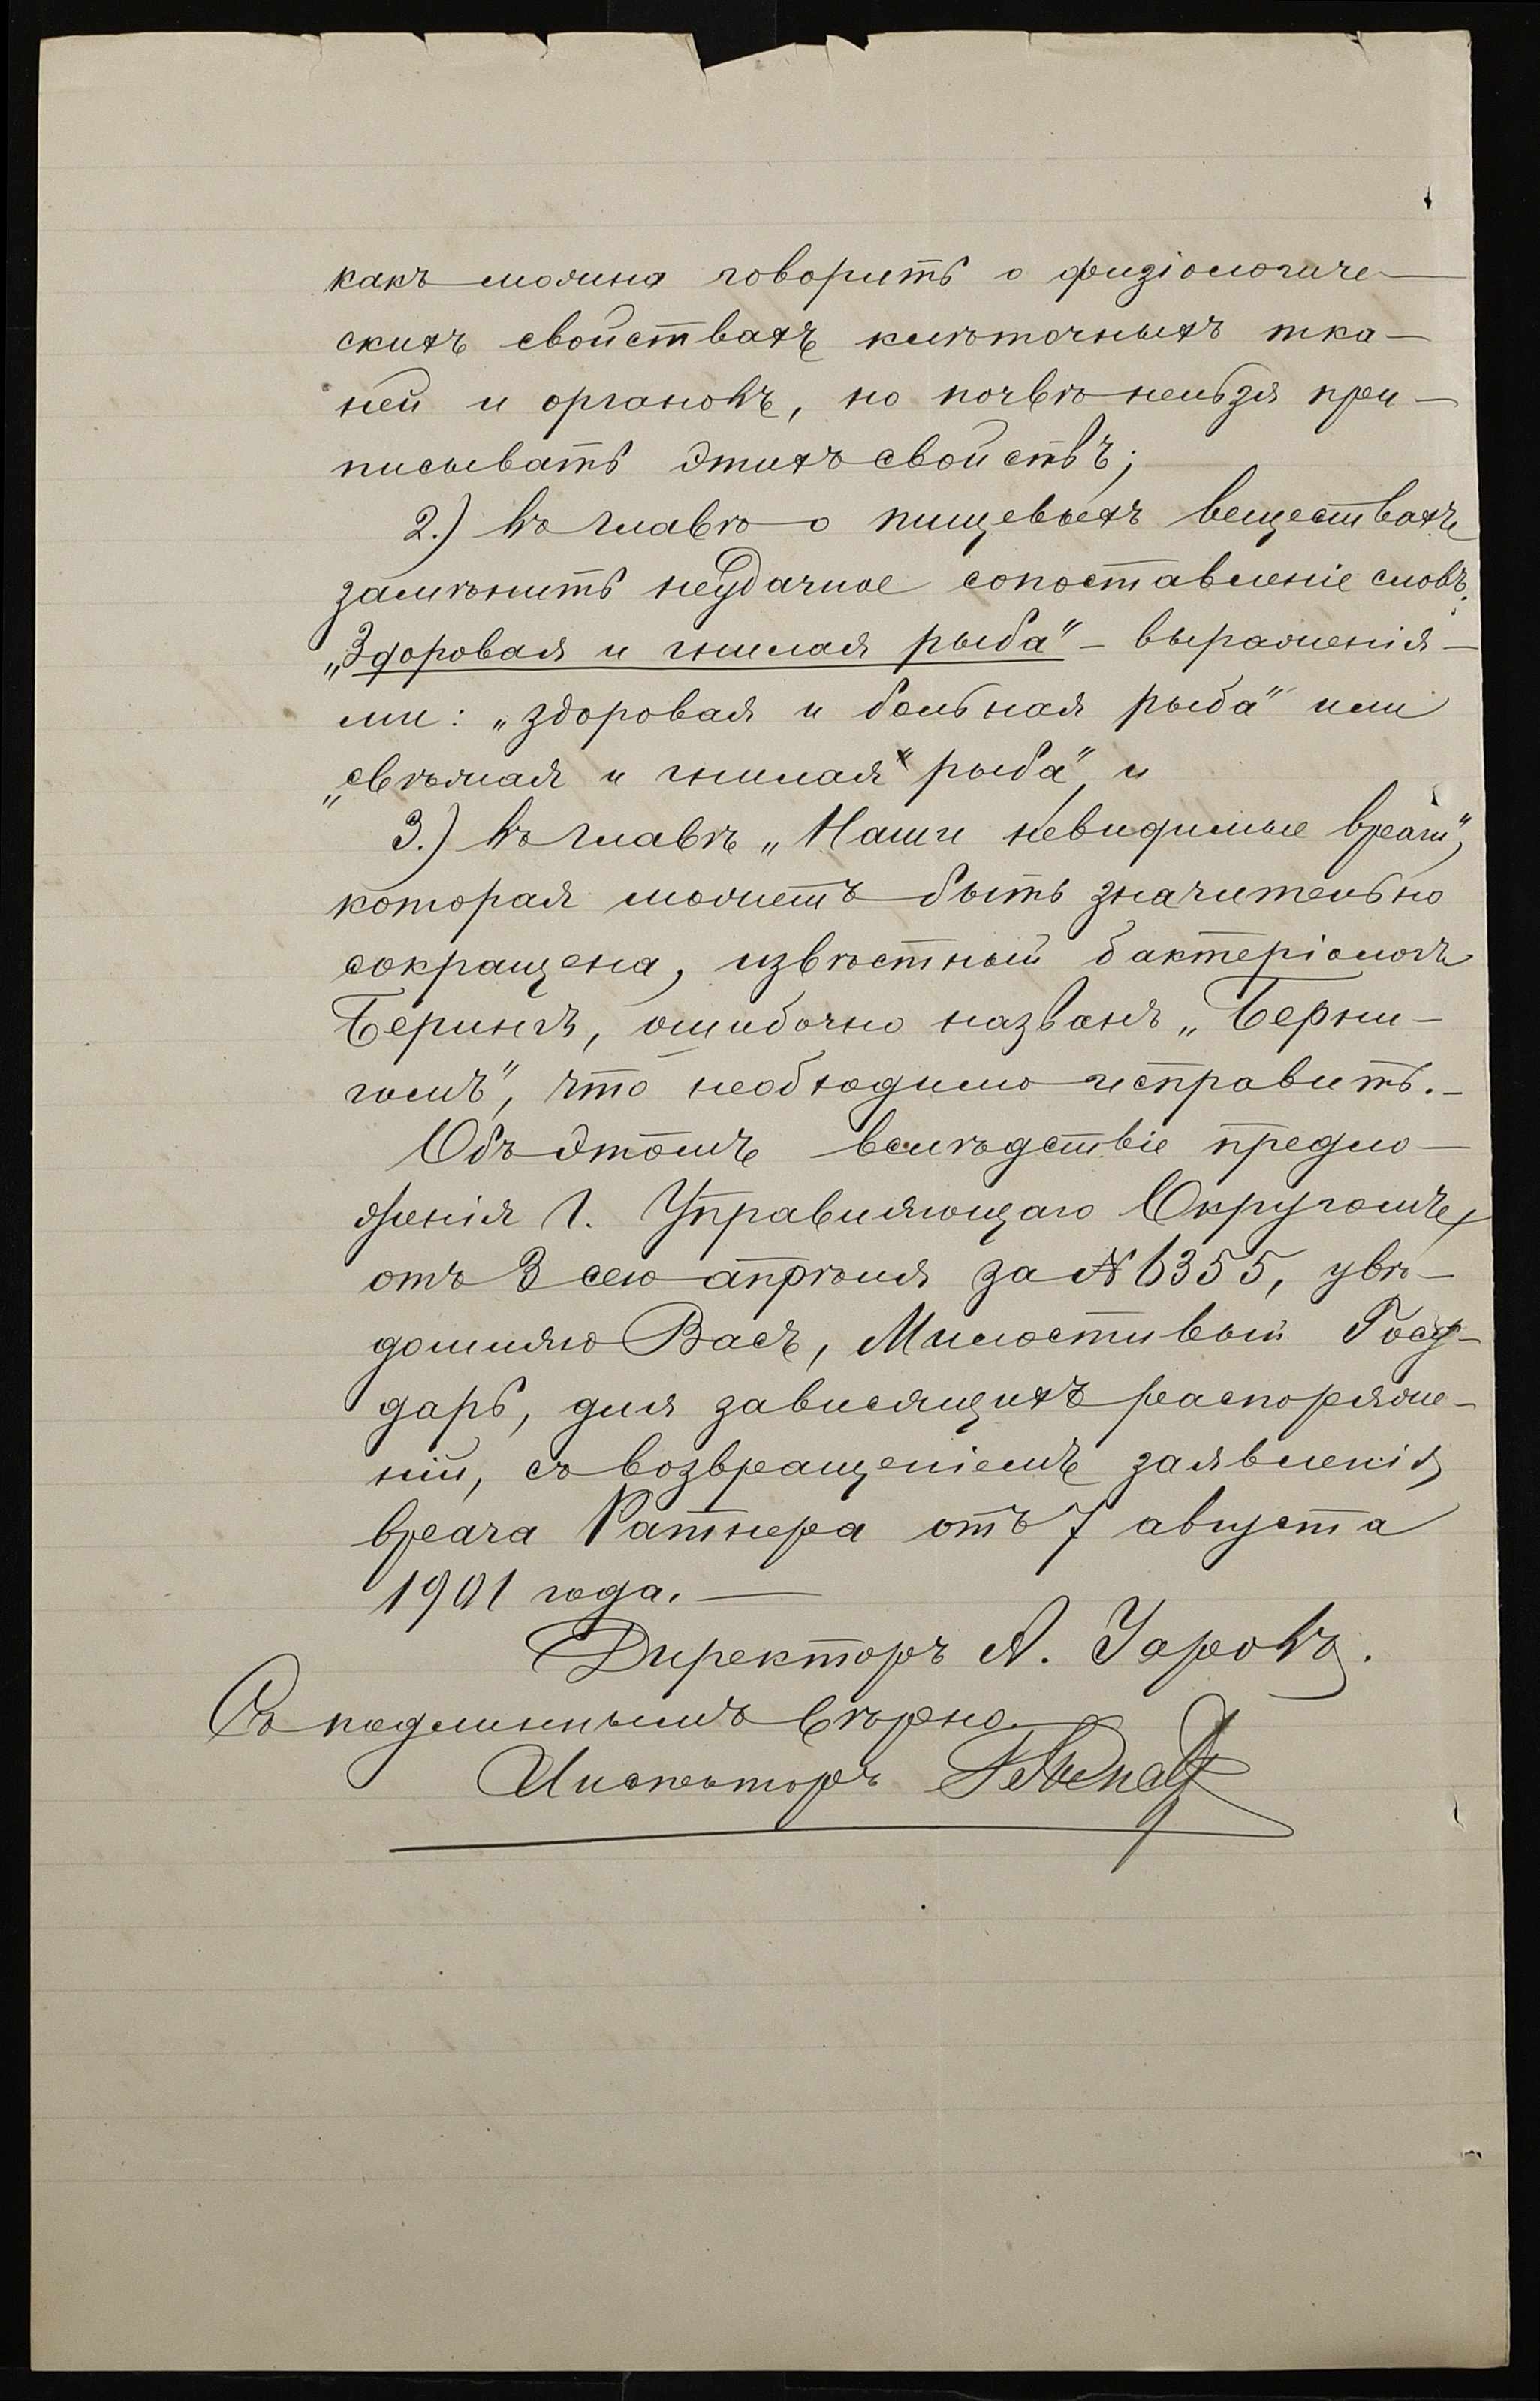 какъ можно говорить о физіологиче-
скихъ свойствахъ клѣточныхъ тка-
ней и органовъ, но почвѣ нельзя при-
писывать этихъ свойствъ;
2.) въ главѣ о пищевыхъ веществахъ
замѣнить неудачное сопоставленіе словъ:
„Здоровая и гнилая рыба" - выраженія-
ми: „здоровая и больная рыба" или
„свѣжая и гнилая" рыба", и
3.) въ главѣ „Наши невидимые враги",
которая можетъ быть значительно
сокращена, извѣстный бактеріологъ
Берингъ, ошибочно названъ „Берни-
гомъ", что необходимо исправить.-
Объ этомъ вслѣдствіе предло-
женія Г. Управляющаго Округомъ,
отъ 3 сего апрѣля за № 6355, увѣ-
домляю Васъ, Милостивый Госу-
дарь, для зависящихъ распоряже-
ній, съ возвращеніемъ заявленія
врача Ратнера отъ 7 августа
1901 года.-
Директоръ А. Уаровъ.
Съ подлиннымъ вѣрно.
Инспекторъ